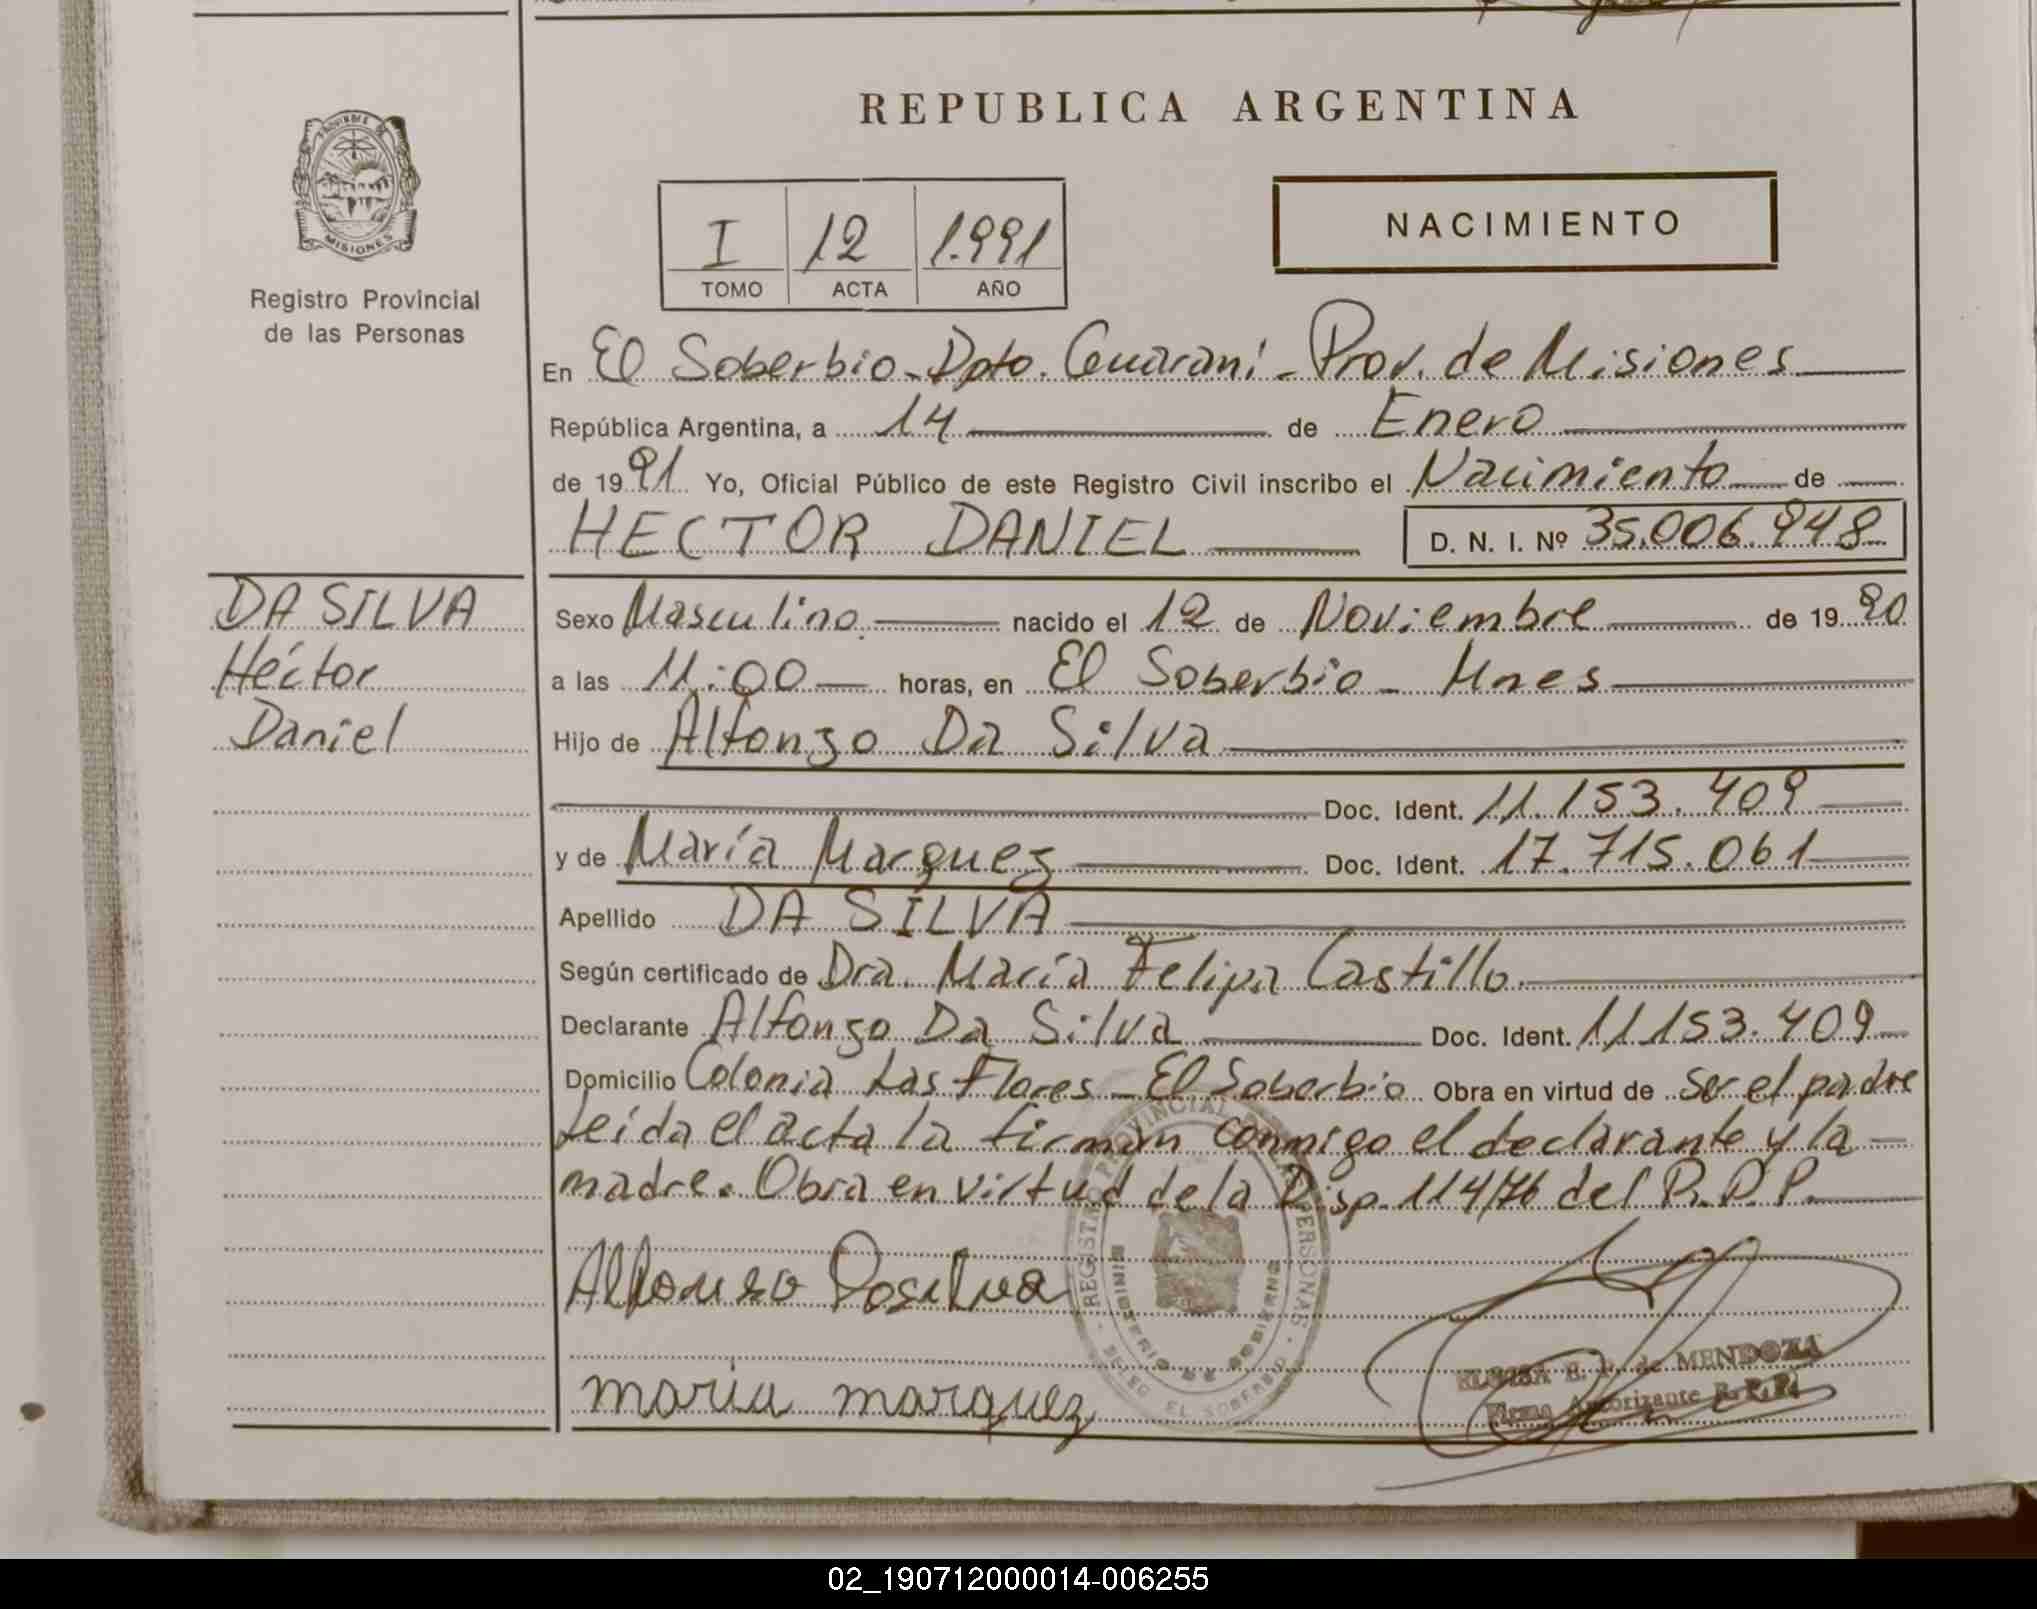 REPUBLICA ARGENTINA
PROVINCIA DE
MISIONES
Registro Provincial
de las Personas
I 12 1.991
TOMO ACTA AÑO
NACIMIENTO
En El Soberbio - Dpto. Guaraní - Prov. de Misiones
República Argentina, a 14 de Enero
de 1991 Yo, Oficial Público de este Registro Civil inscribo el Nacimiento de
HECTOR DANIEL D. N. I. Nº 35.006.948
DA SILVA
Héctor
Daniel
Sexo Masculino nacido el 12 de Noviembre de 1990
a las 11:00 horas, en El Soberbio - Mnes
Hijo de Alfonzo Da Silva
Doc. Ident. 11.153.409
y de María Marquez Doc. Ident. 17.715.061
Apellido DA SILVA
Según certificado de Dra. María Felipa Castillo.
Declarante Alfonzo Da Silva Doc. Ident. 11.153.409
Domicilio Colonia Las Flores - El Soberbio Obra en virtud de Ser el padre
Leída el acta la firman conmigo el declarante y la
madre. Obra en virtud de la Disp. 114/76 del R.P.P.
Alfonzo Dasilva
maria marquez
REGISTRO PROVINCIAL DE LAS PERSONAS
MINISTERIO DE GOBIERNO
DELEG. EL SOBERBIO
E. P. de MENDOZA
Firma Autorizante R.P.P.
02_190712000014-006255